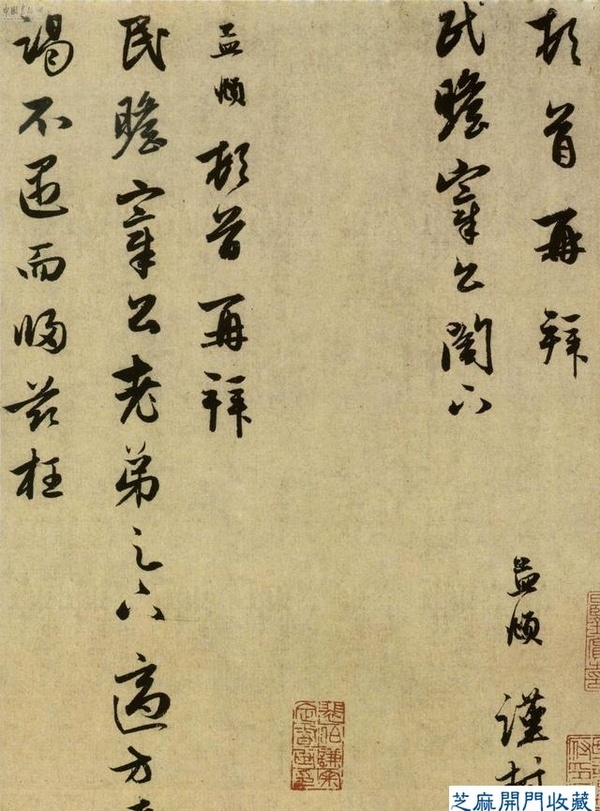 頓首再拜
民瞻宰公閣下
孟頫謹封
孟頫頓首再拜
民瞻宰公老弟足下適方
謁不遇而歸兹枉
芝麻開門收藏